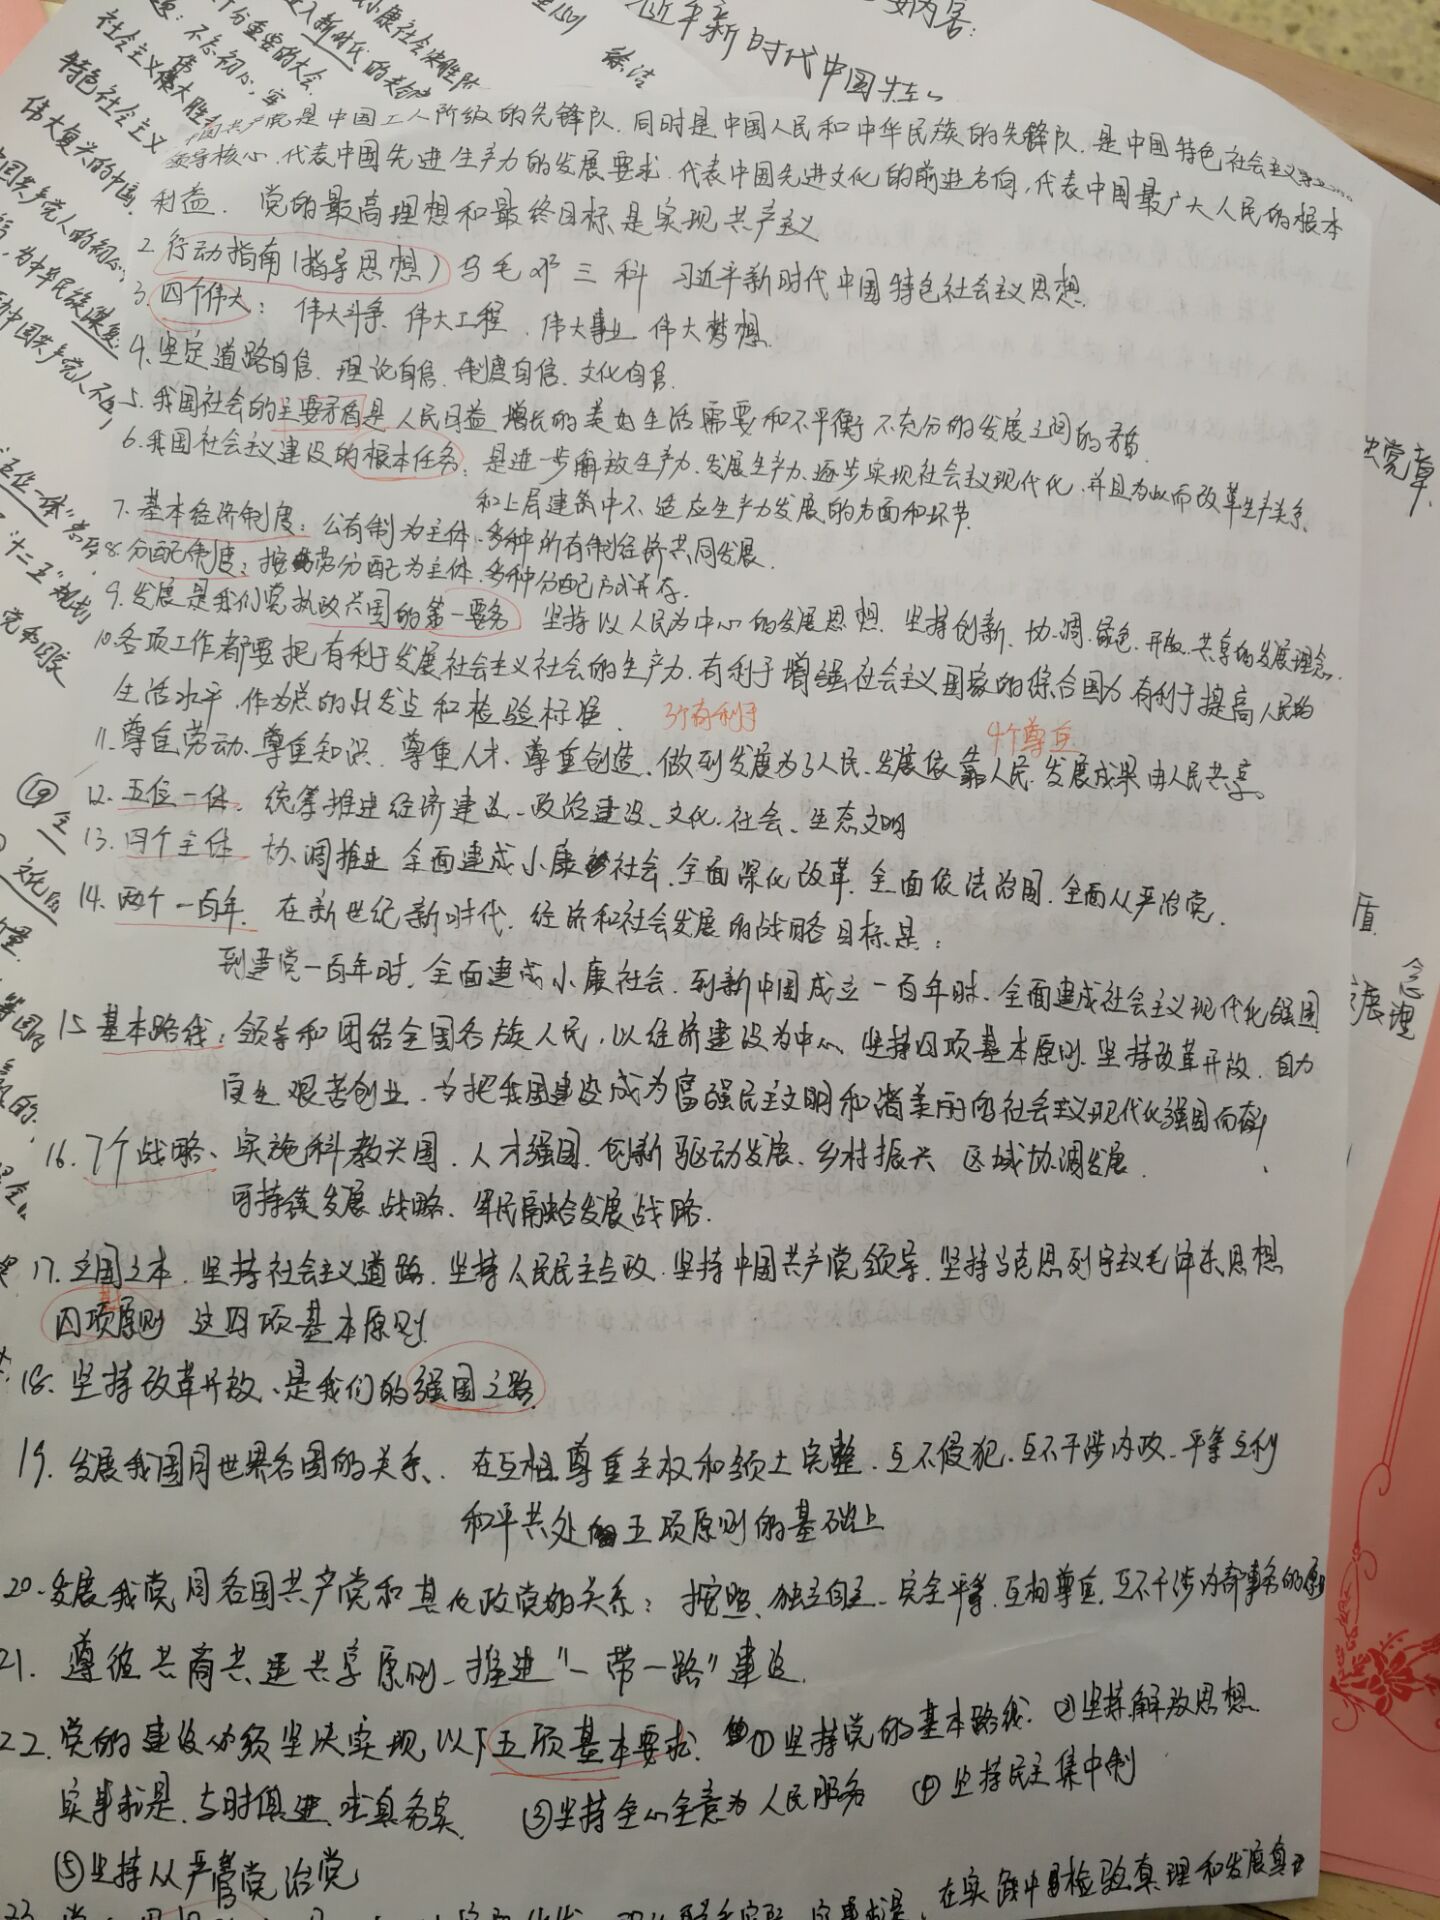 小康社会决胜阶
进入新时代的关
十分重要的大会
不忘初心
社会主义伟大胜
特色社会主义
伟大复兴的中国
中国共产党人的初心
为中华民族谋复
动中国共产党人不
五位一体
十二五"规划
党和国家
徐洁
习近平新时代中国特
内容:
党章
盾
念
展理
中国共产党是中国工人阶级的先锋队.同时是中国人民和中华民族的先锋队.是中国特色社会主义事业
领导核心.代表中国先进生产力的发展要求.代表中国先进文化的前进方向,代表中国最广大人民的根本
利益. 党的最高理想和最终目标是实现共产主义
2.行动指南(指导思想)马毛邓三科 习近平新时代中国特色社会主义思想.
3.四个伟大: 伟大斗争、伟大工程、伟大事业、伟大梦想.
4.坚定道路自信、理论自信、制度自信、文化自信.
5.我国社会的主要矛盾是人民日益增长的美好生活需要和不平衡不充分的发展之间的矛盾.
6.我国社会主义建设的根本任务:是进一步解放生产力、发展生产力、逐步实现社会主义现代化.并且为此而改革生产关系
和上层建筑中不适应生产力发展的方面和环节.
7.基本经济制度:公有制为主体、多种所有制经济共同发展.
8.分配制度:按劳分配为主体.多种分配方式并存.
9.发展是我们党执政兴国的第一要务 坚持以人民为中心的发展思想.坚持创新、协调、绿色、开放、共享的发展理念.
10.各项工作都要把有利于发展社会主义社会的生产力.有利于增强社会主义国家的综合国力 有利于提高人民的
生活水平.作为总的出发点和检验标准. 3个有利于
4个尊重
11.尊重劳动、尊重知识、尊重人才、尊重创造.做到发展为了人民、发展依靠人民、发展成果由人民共享。
12.五位一体. 统筹推进经济建设、政治建设、文化、社会、生态文明
13.四个主体 协调推进 全面建成小康社会.全面深化改革.全面依法治国.全面从严治党.
14.两个一百年. 在新世纪新时代.经济和社会发展的战略目标是:
到建党一百年时,全面建成小康社会.到新中国成立一百年时、全面建成社会主义现代化强国
15.基本路线:领导和团结全国各族人民,以经济建设为中心 坚持四项基本原则.坚持改革开放.自力
更生 艰苦创业.为把我国建设成为富强民主文明和谐美丽的社会主义现代化强国而奋斗
16.7个战略、实施科教兴国.人才强国.创新驱动发展.乡村振兴 区域协调发展.
可持续发展战略、军民融合发展战略.
17.立国之本.坚持社会主义道路.坚持人民民主专政.坚持中国共产党领导.坚持马克思列宁主义毛泽东思想
四项基原则 这四项基本原则
18.坚持改革开放、是我们的强国之路.
19.发展我国同世界各国的关系. 在互相尊重主权和领土完整.互不侵犯.互不干涉内政.平等互利
和平共处的五项原则的基础上
20.发展我党同各国共产党和其他政党的关系: 按照、独立自主、完全平等.互相尊重.互不干涉内部事务的原则
21. 遵循共商共建共享原则、推进"一带一路"建设.
22.党的建设必须坚决实现以下五项基本要求. ①坚持党的基本路线. ②坚持解放思想
实事求是.与时俱进.求真务实. ③坚持全心全意为人民服务 ④坚持民主集中制
⑤坚持从严管党治党
在实践中检验真理和发展真理